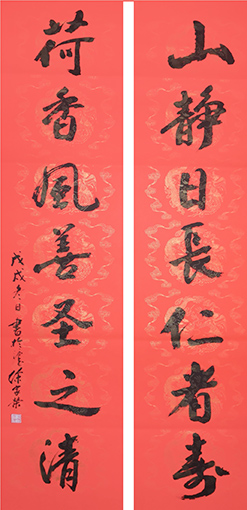 山静日長仁者寿
荷香風善圣之清
戊戌冬日書於